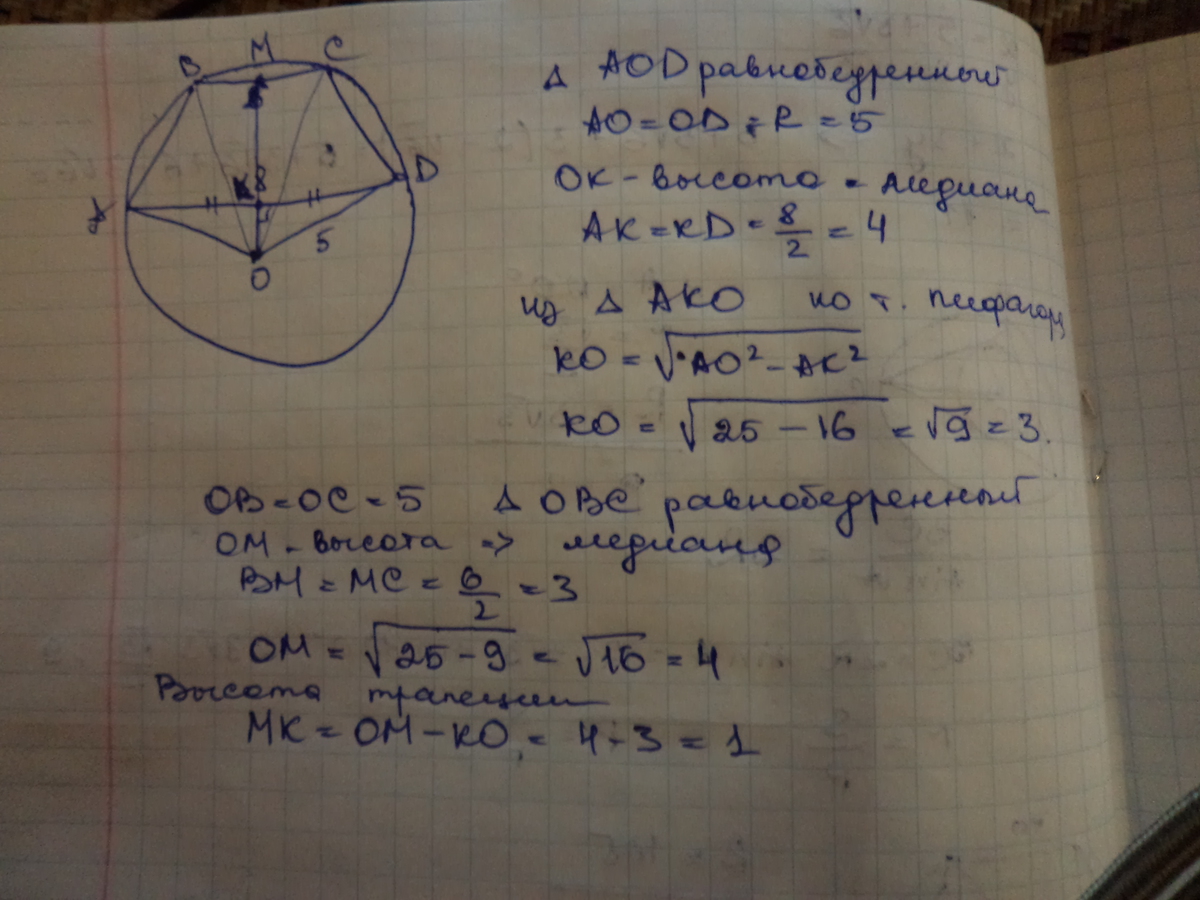 B M C
K 8 D
A
5
O
Δ AOD равнобедренный
AO = OD = R = 5
OK - высота = медиана
AK = KD = 8/2 = 4
из Δ AKO по т. Пифагора
KO = √AO² - AK²
KO = √25 - 16 = √9 = 3.
OB = OC = 5 Δ OBC равнобедренный
OM - высота => медиана
BM = MC = 6/2 = 3
OM = √25 - 9 = √16 = 4
Высота трапеции
MK = OM - KO = 4 - 3 = 1